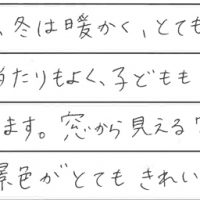 、冬は暖かく、とても
当たりもよく、子どもも
ます。窓から見える
景色がとても きれい